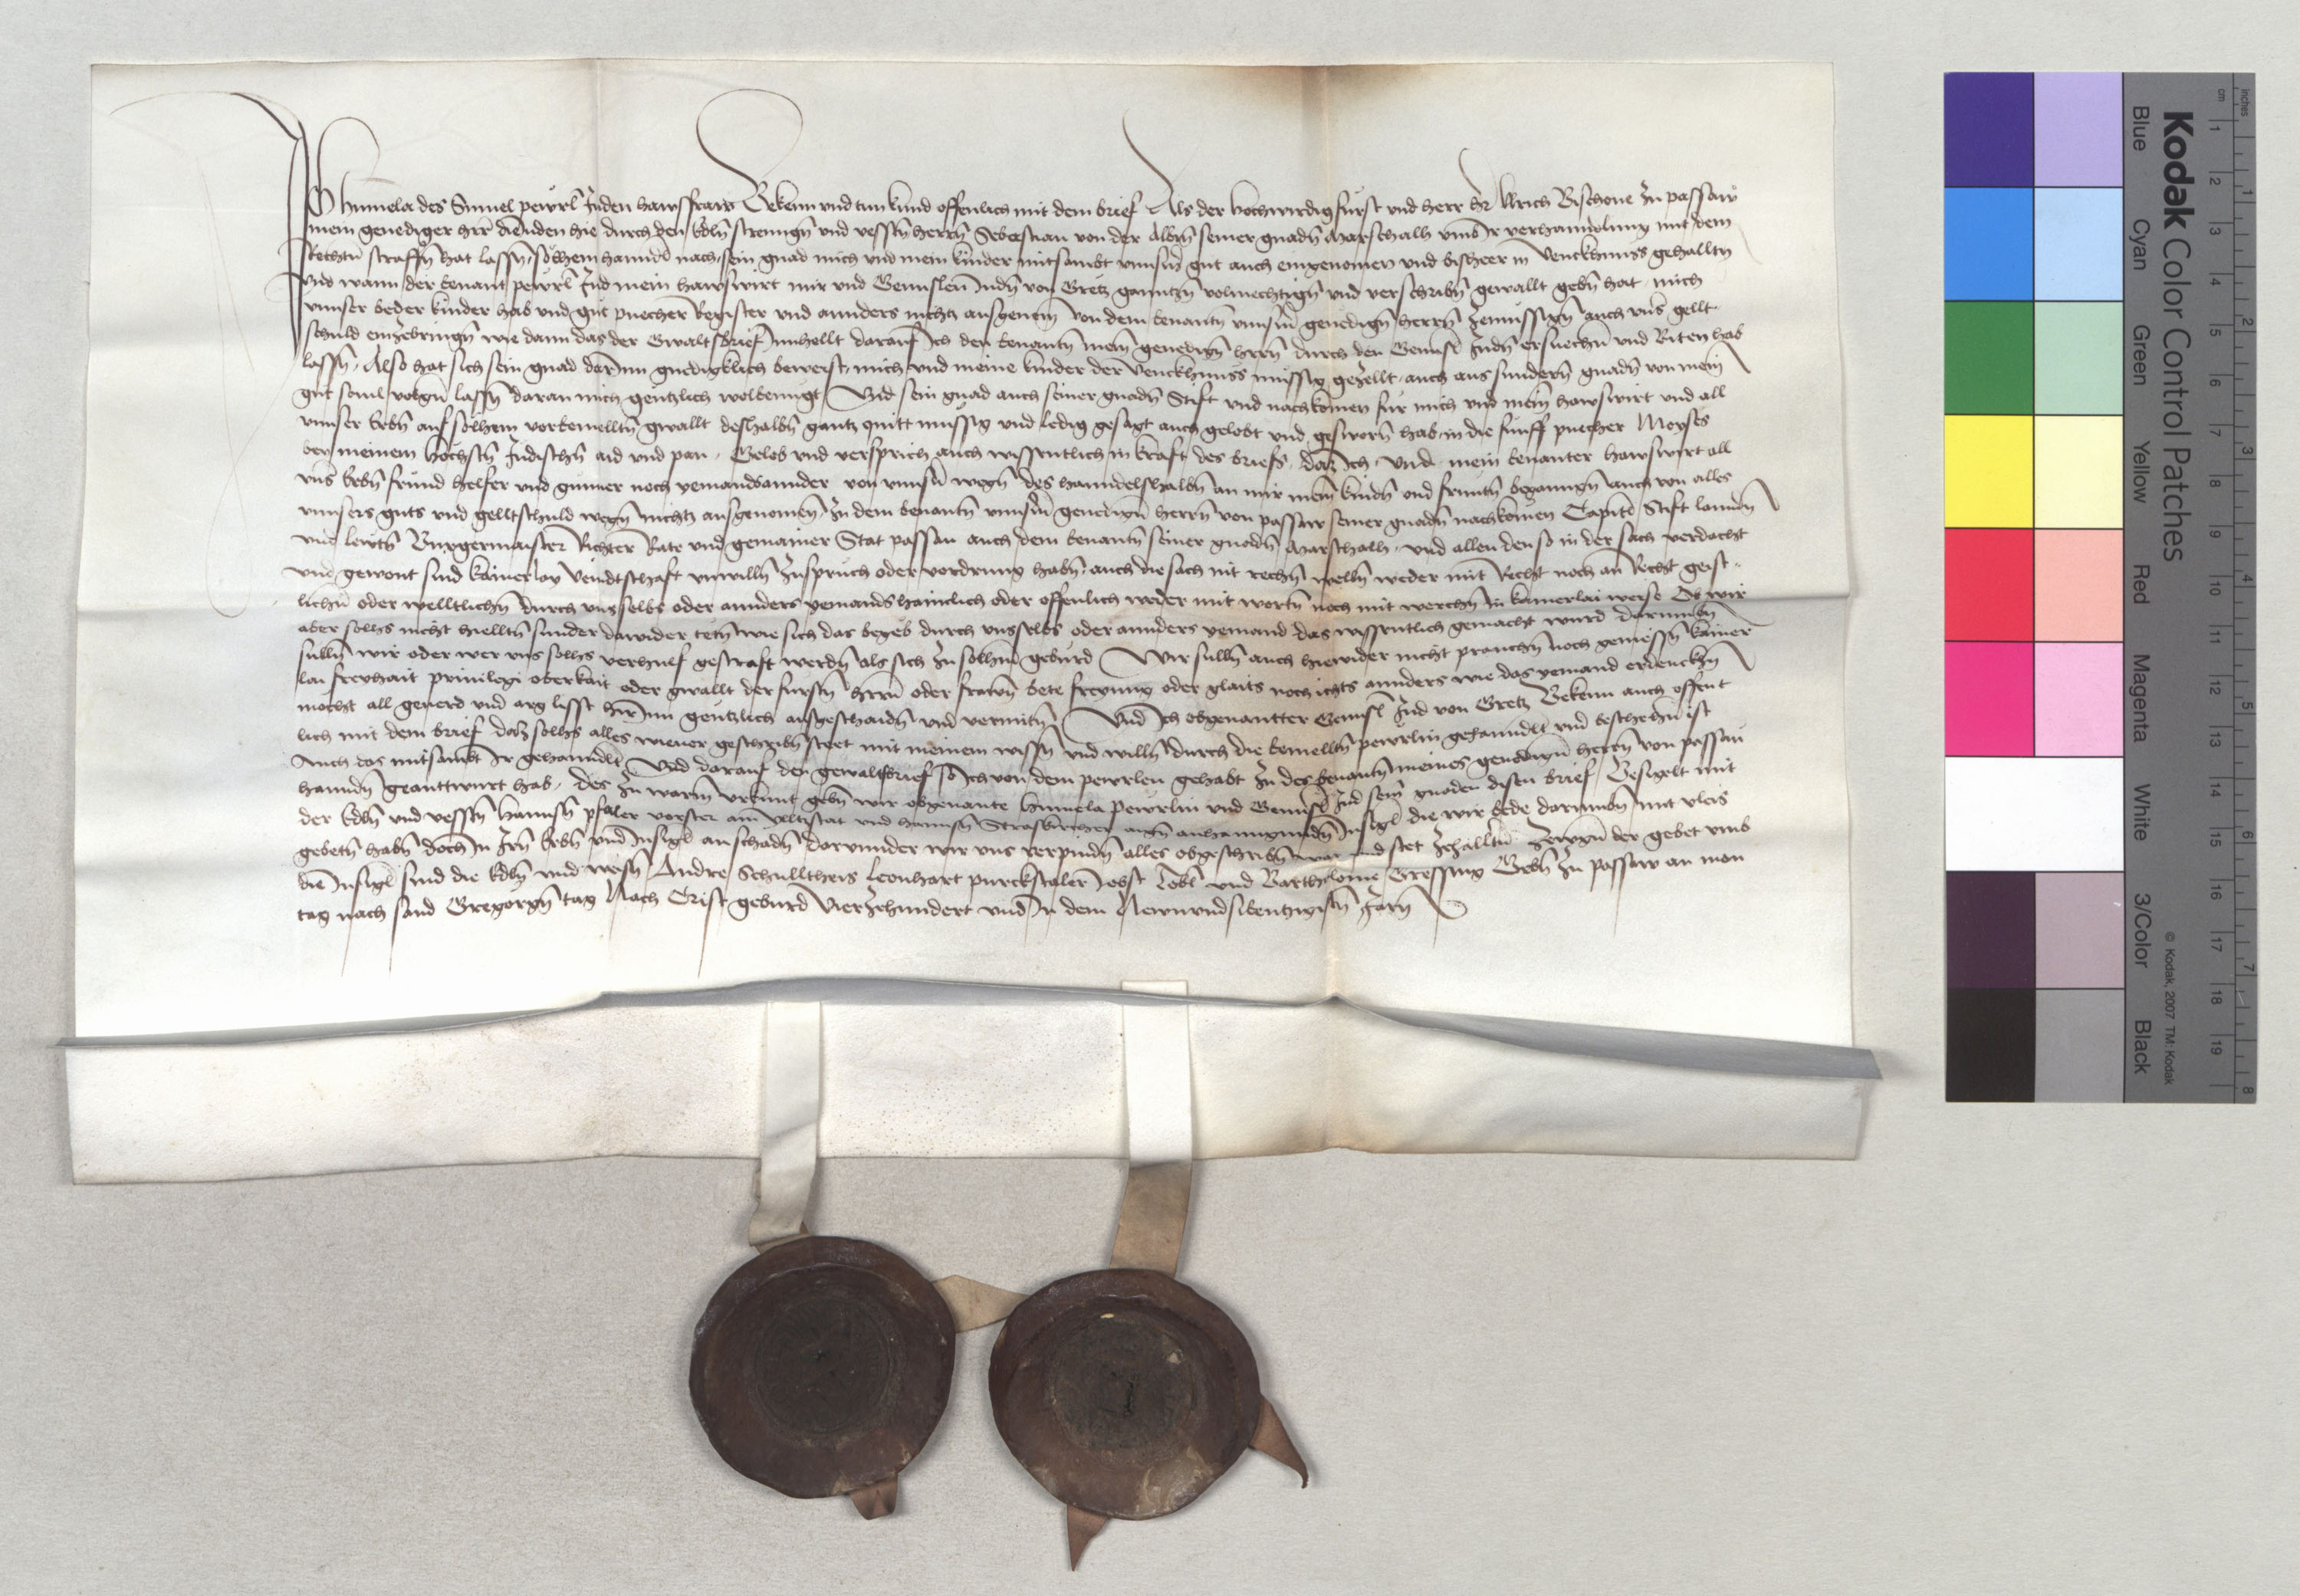 Ich hinnela des Sinnel pewrl Juden hawsfraw Bekenn vnd tun kund offenlich mit dem brief Als der hochwirdig furst vnd herr hr Ulrich Bischoue zu passaw
mein genediger hrr die iuden hie durch den Edln strenngn vnd vesstn herrn Sebastian von der Albm seiner gnadn Marschalh vmb Ir verhanndlung mit dem
Rechtn straffn hat lassn, solhem hanndl nach sein gnad mich vnd mein kinder mitsambt vnnserm gut auch eingenomen vnd bisheer in venckhnuss gehalltn
Vnd wann der benant pewrl Jud mein hawswirt mir vnd Gennslen Judn von Gretz ganntzn volmechtign vnd verschribn gewallt gebn hat, mich
vnnser beder kinder hab vnd gut puecher Register vnd annders nichtz ausgenom von dem benantn vnnserm genedign herrn zemüssign auch vns gellt
schuld einzebringn wie dann das der Gwaltsbrief innhellt darauf Ich den benantn mein genedign hrrn durch den Gennsl Judn ersuechn vnd Biten hab
lassn, Also hat sich sein gnad darInn gnedigklich beweist, mich vnd meine kinder der Venckhnuss müssig gezellt, auch aus sundern gnadn von mein
gut souil volgn lassn daran mich genntzlich wolbenugt Vnd sein gnad auch seiner gnadn Stift vnd nachkomen fur mich vnd mein hawswirt vnd all
vnnser Erbn auf solhem vorbemelltn gwallt deshalbn gantz quitt müssig vnd ledig gesagt auch gelobt vnd gesworn hab, in die funff puecher Moyses
bey meinem höchstn Judischn aid vnd pan, Gelob vnd versprich auch wissentlich in kraft des briefs, daz Ich, vnd mein benanter hawswirt all
vns Erbn frund helfer vnd gunner noch yemands annder von vnnsern wegn des hanndelshalbn an mir mein kindn vnd frundn beganngn auch von alles
vnnsers guts vnd gelltschuld wegn nichtz ausgenomen, zu dem benantn vnnserm genedign herrn von passaw seiner gnadn nachkomen Capitl Stift lanndn
vnd lewtn Burgermaister Richter Rate vnd gemainer Stat passau auch dem benantn seiner gnadn Marschalh, vnd allen den so in der sach verdacht
vnd gewont sind kainerlay veindtschaft vnwilln zuspruch oder vordrung habn, auch die sach nit rechn welln weder mit Recht noch an Recht geist-
lichn oder welltlichn durch vns selbs oder annders yemands haimlich oder offenlich weder mit wortn noch mit werchn in kainerlai weise Ob wir
aber solhs nicht hielltn sunder dawider tetn wie sich das begeb durch vnsselbs oder annders yemand das wissentlich gemacht wurd darumbn
sulln wir oder wer vns solhs verhulf gestraft werdn als sich zu solhem geburd Wir sulln auch hiewider nicht prauchn noch geniessn kainer
lai freyhait priuilegi oberkait oder gwallt der furstn hrrn oder frawn bete freyung oder glaits noch ichts annders wie das yemand erdenckn
mocht all geuerd vnd arg lisst hirInn genntzlich ausgeschaidn vnd vermitn Vnd Ich obgenantter Gennsl Jud von Gretz Bekenn auch offent
lich mit dem brief daz solhs alles wieuor geschribn steet mit meinem wissn vnd willn durch die bemelltn pewrlin gehanndlt vnd bescheehn ist
Auch das mitsambt Ir gehanndlt Vnd darauf den gewaltsbrief so Ich von dem pewrlen gehabt zu des benantn meines genedign herrn von passau
hanndn geanttwurt hab, des zu warm vrkunt gebn wir obgenante hinnela Pewrlin vnd Gennsl Jud sein gnaden disen brief Besigelt mit
der Edln vnd vesstn hannsn pfaler vorster am Veltistat vnd hannsn Straskircher aign anhanngundn Insigl die wir bede darumbn mit vleis
gebetn habn doch In Irn Erbn vnd Insigl an schadn darunnder wir vns verpindn alles obgeschribn war vnd stet zehalltn zewgn der gebet vmb
die Insigl sind die Edln vnd wesn Andre Schulltheis Leonhart purckstaler Jobst Töbl vnd Barthelome Gressing Gebn zu passaw an mon
tag nach sand Gregorgn tag Nach Crist geburd Vierzehundert vnd In dem Newnvndsibentzigistn Jarn
Kodak Color Control Patches
Blue Cyan Green Yellow Red Magenta White 3/Color Black
© Kodak, 2007 TM: Kodak
cm 1 2 3 4 5 6 7 8 9 10 11 12 13 14 15 16 17 18 19
inches 1 2 3 4 5 6 7 8